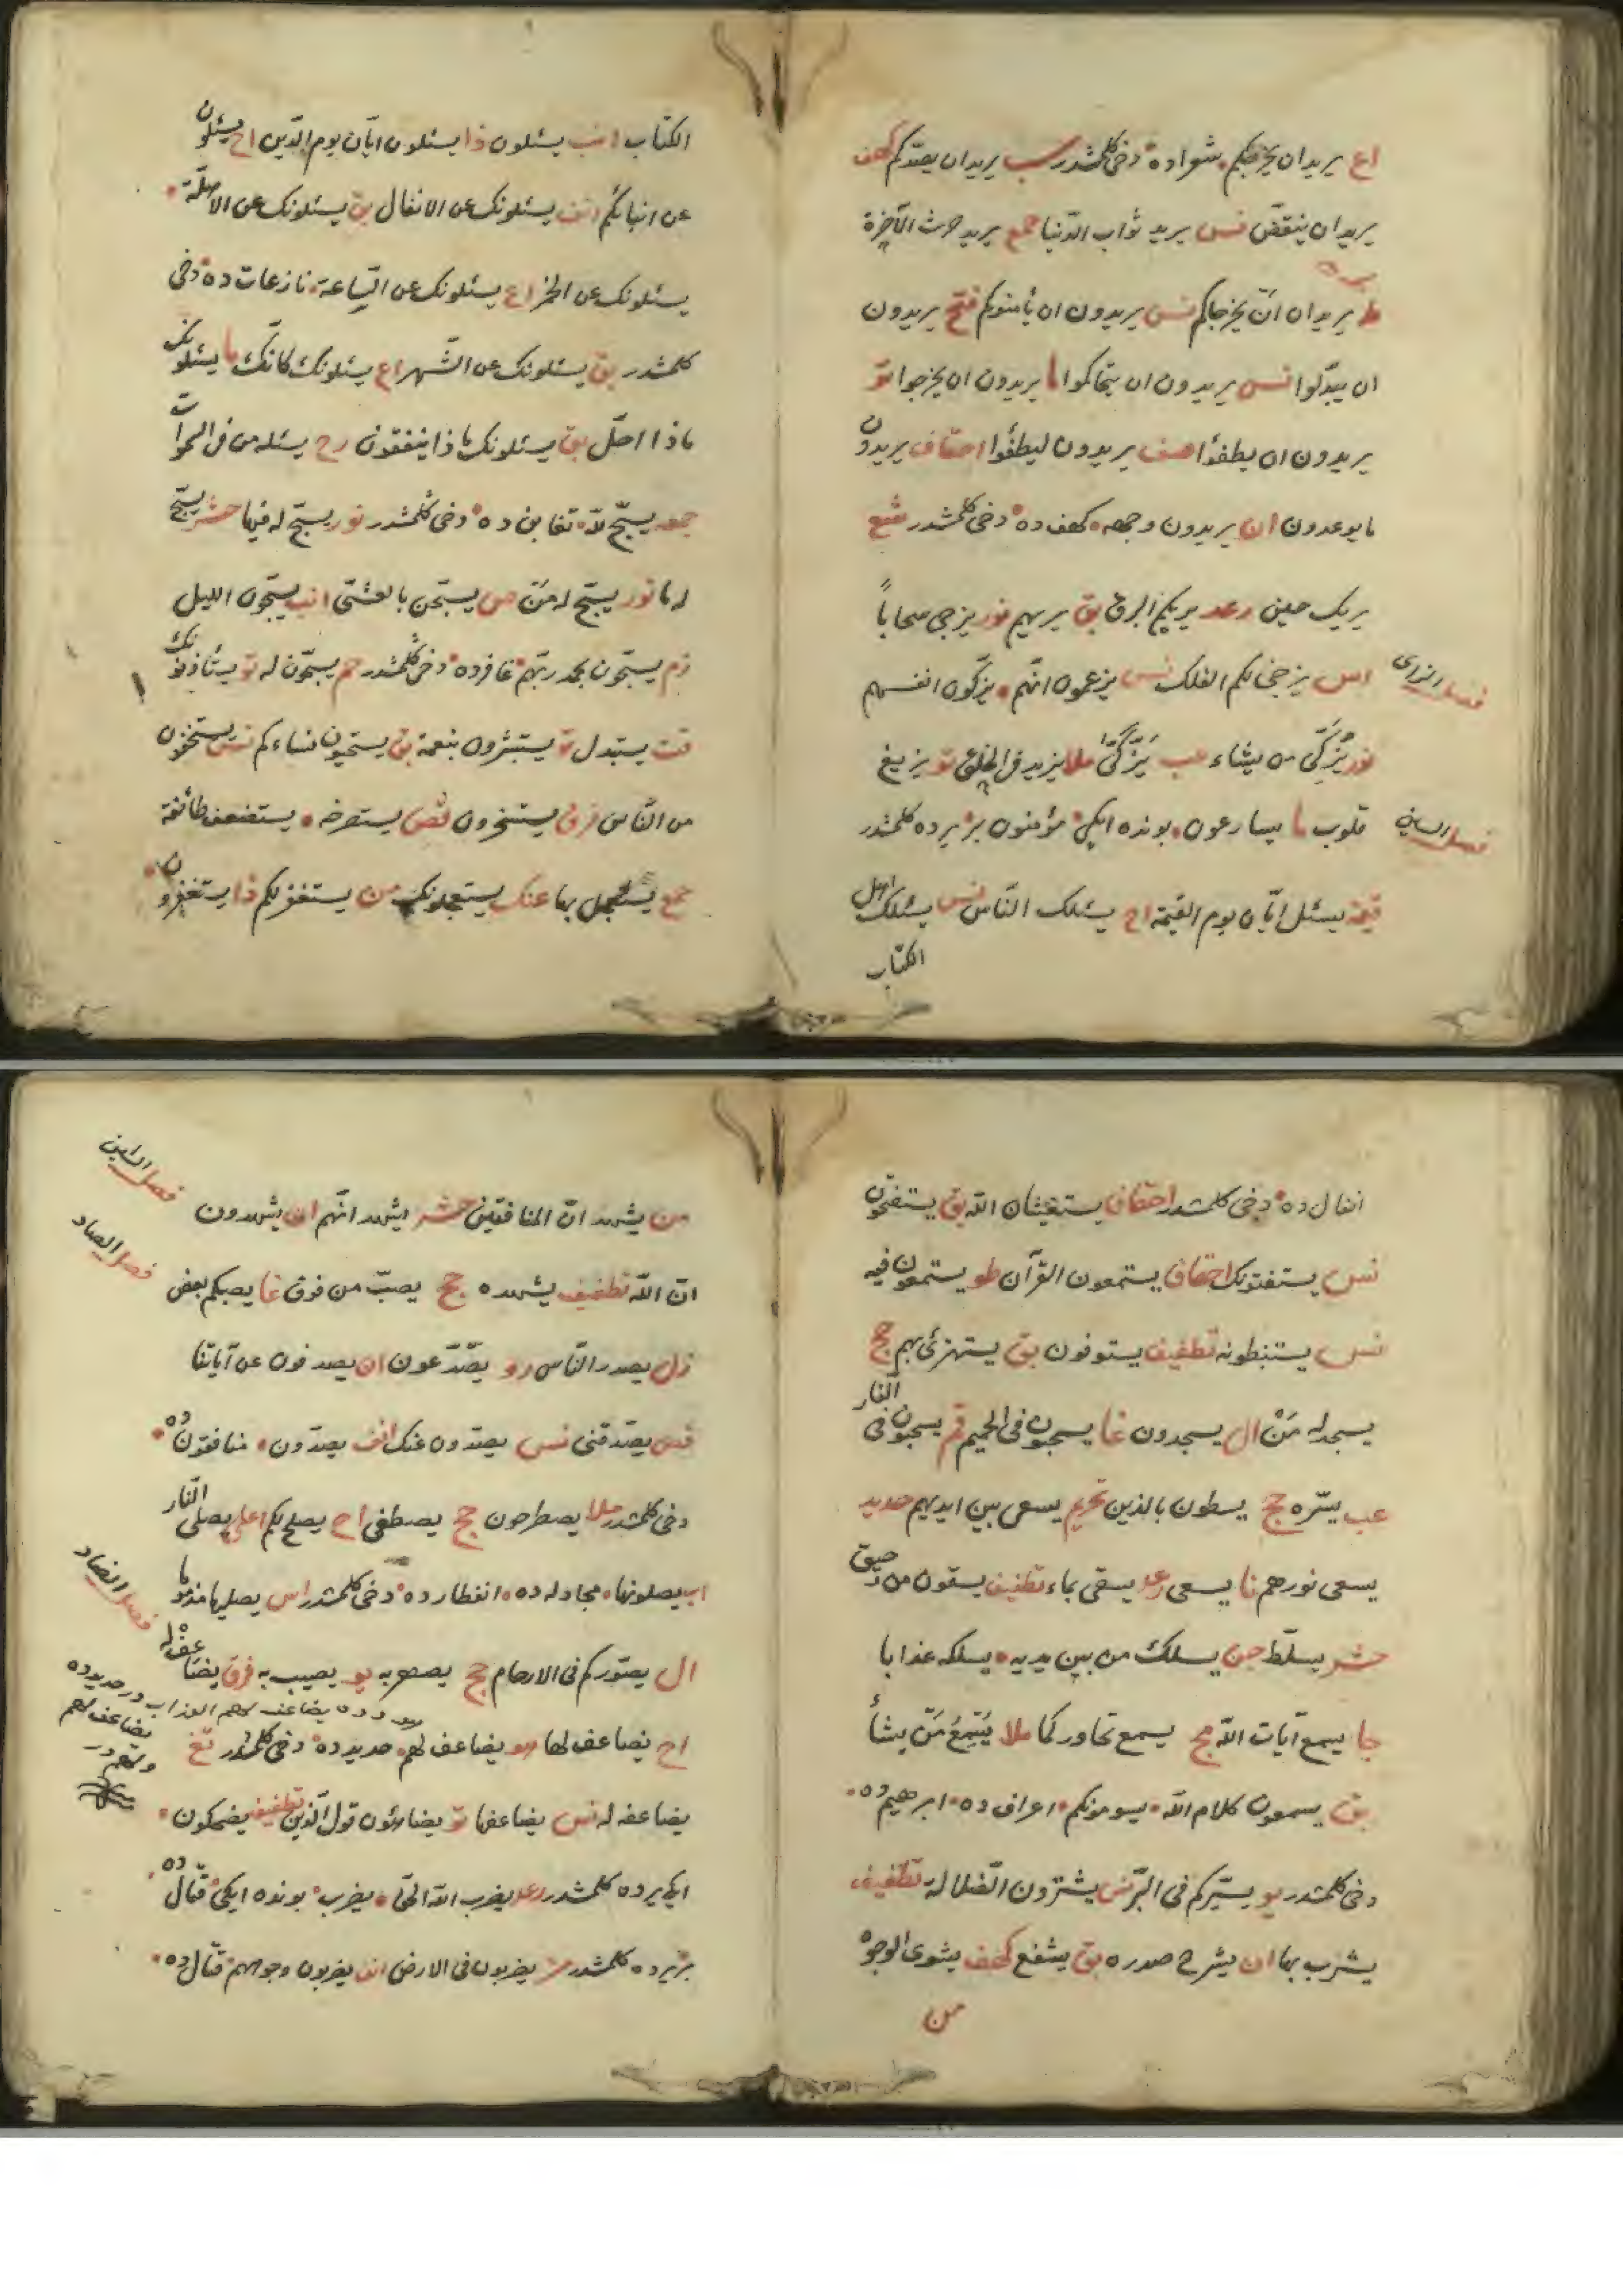 اع يريد ان يخرجكم شعراده دخى كلمشدر سب يريد ان يصدّكم كهف
يريد ان ينقضّ نس يريد ثواب الدّنيا جمع يريد حرث الآخرة
ط يريدان ان يخرجاكم نس يريدون ان يأمنوكم فتح يريدون
ان يبدّلوا نس يريدون ان يتحاكموا ما يريدون ان يخرجوا تو
يريدون ان يطفؤا صف يريدون ليطفؤا احقاف يريدون
ما يوعدون ان يريدون وجهه كهف ده دخى كلمشدر شع
يريك حين رعد يريكم البرق بق يريهم نور يزجى سحاباً
فصل الزاى
اس يزجى لكم الفلك نس يزعمون انّهم يزكّون انفسهم
نور يُزَكّى من يشاء عب يَزَّكّى ملا يزيد فى الخلق تو يزيغ
فصل السين
قلوب ما يسارعون بونده ايكى مؤمنون بر يرده كلمشدر
قيمة يسئل ايّان يوم القيمة اح يسئلك النّاس نس يسئلك اهل
الكتاب
الكتاب انب يسئلون ذا يسئلون ايّان يوم الدّين اح يسئلون
عن انبائكم انف يسئلونك عن الانفال بق يسئلونك عن الاهلّة
يسئلونك عن الخمر اع يسئلونك عن السّاعة نازعات ده دخى
كلمشدر بق يسئلونك عن الشّهر اع يسئلونك كانّك ما يسئلونك
ماذا احلّ بق يسئلونك ماذا ينفقون رح يسئله من فى السموات
جمعه يسبّح للّه تغابن ده دخى كلمشدر نور يسبّح له فيها حشر يسبّح
له ما نور يسبّح له من ص يسبّحن بالعشىّ انب يسبّحون الليل
زم يسبّحون بحمد ربّهم غافرده دخى كلمشدر حم يسبّحون له تو يستأذنونك
قت يستبدل تو يستبشرون بنعمة بق يستحيون نساءكم نس يستخفون
من النّاس فرق يستسخرون قص يستصرخه يستضعف طائفة
جمع يستعجل بها عنك يستعجلونك من يستغفر لكم ذا يستغفرون
انفال ده دخى كلمشدر احقاف يستغيثان اللّه بق يستفتحون
نس يستفتونك احقاف يستمعون القرآن طو يستمعون فيه
نس يستنبطونه تطفيف يستوفون بق يستهزئ بهم حج
يسجد له مَنْ ال يسجدون غا يسحبون فى الحميم قم يسحبون فى النار
عب يسّره حج يسطون بالذين تحريم يسعى بين ايديهم حديد
يسعى نورهم نا يسعى رعد يسقى بماء تطفيف يسقون من رحيق
حشر يسلّط جن يسلك من بين يديه يسلكه عذابا
جا يسمع آيات اللّه مج يسمع تحاوركما ملا يُسْمِعُ مَنْ يشأ
بق يسمعون كلام اللّه يسومونكم اعراف ده ابرهيم ده
دخى كلمشدر يو يسيّركم فى البرّ نس يشترون الضّلالة تطفيف
يشرب بها ان يشرح صدره بق يشفع كهف يشوى الوجوه
من
فصل الشين
من يشهد انّ المنافقين حشر يشهد انّهم ان يشهدون
فصل الصاد
انّ اللّه تطفيف يشهده حج يصبّ من فوق غا يصبكم بعض
زل يصدر النّاس رو يصّدّعون ان يصدفون عن آياتنا
قص يصدّقنى نس يصدّون عنك انف يصدّون منافقون ده
دخى كلمشدر ملا يصطرخون حج يصطفى اح يصلح لكم اعلى يصلى النّار
اب يصلونها مجادله ده انفطار ده دخى كلمشدر اس يصليها مذموما
فصل الضاد
ال يصوّركم فى الارحام حج يصهر به يو يصيب به فرق يضاعف له
اح يضاعف لها هو يضاعف لهم حديد ده دخى كلمشدر تغ
يضاعفه له نس يضاعفها تو يضاهئون قول الّذين تطفيف يضحكون
ايكى يرده كلمشدر رعد يضرب اللّه الحقّ يضرب بونده ايكى قتال ده
بر يرده كلمشدر مز يضربون فى الارض انف يضربون وجوههم قتال ده